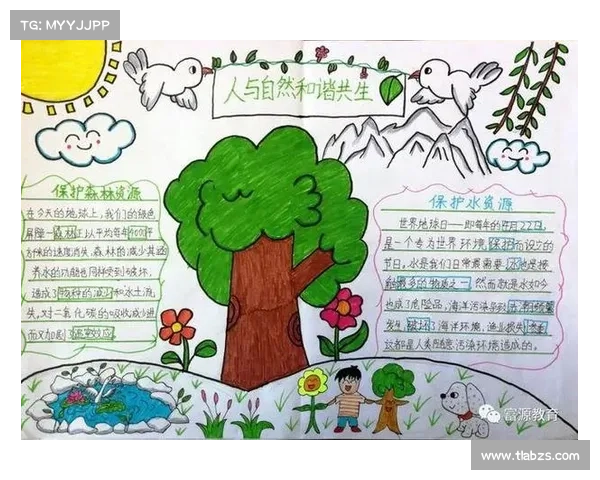 TG: MYYJJPP
人与自然和谐共生
保护森林资源
在今天的地球上，我们的绿色
屏障—森林正以平均每年4000平
方千米的速度消失，森林的减少其涵
养水的功能也同样受到破坏，
造成了物种的减少和水土流
失，对二氧化碳的吸收减少进
而又加剧了温室效应。
保护水资源
世界地球日——即每年的4月22日，
是一个专为世界环境保护而设立的
节日，水是我们日常需要，水也是接
触最多的物质之一，然而就是水如今
也成了危险品，海洋污染
发生，破坏了海洋环境，渔业损失
这都是人类随意污染环境造成的。
富源教育
www.tlabzs.com